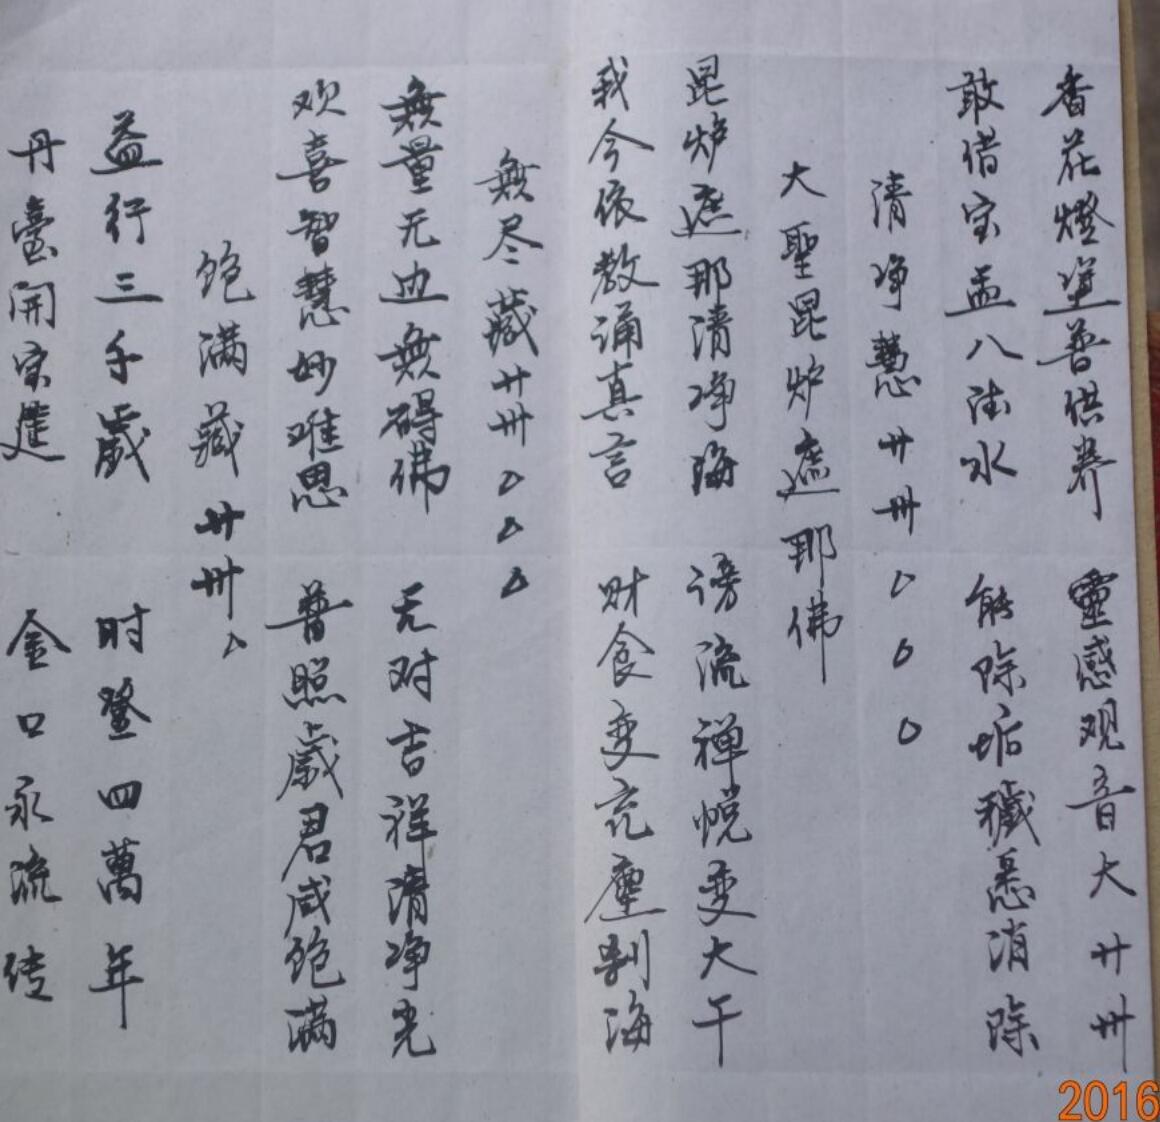 香花燈塗普供养 靈感观音大廾卅
敢借宝盂八法水 能除垢穢悉消除
清净慧廾卅
大聖昆炉遮耶佛
昆炉遮那清净海 谤流禅悦变大千
我今依教诵真言 财食变充塵刹海
無尽藏廾卅
無量无边無碍佛 无对吉祥清净光
欢喜智慧妙难思 普照歲君咸饱满
饱满藏廾卅
益行三千歲 时登四萬年
丹臺開宝 金口永流传
2016